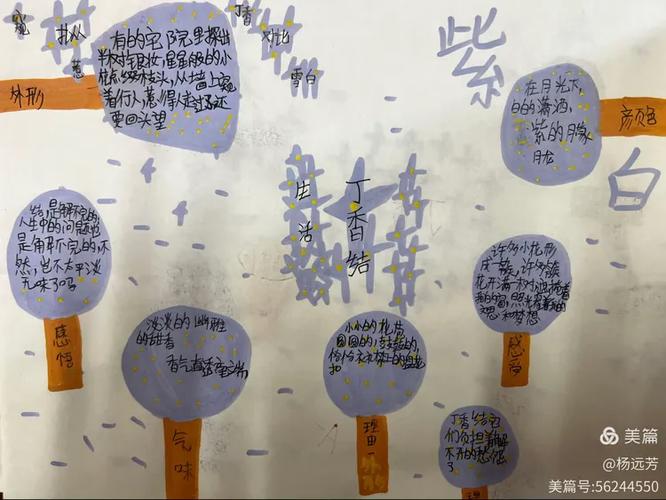 窥
拟人
惹
丁香
对比
雪白
有的宅院里探出
半树银妆,星星般的小
花缀满枝头,从墙上窥
着行人,惹得人走过了还
要回头望
外形
紫
白
在月光下,
白的潇洒,
紫的朦
胧
颜色
生活
丁香结
结,是解不完的;
人生中的问题也
是解不完的,不
然,岂不太平淡
无味了吗
感悟
淡淡的幽雅
的甜香
香气直
气味
小小的花苞
圆圆的,鼓鼓的,
恰如衣襟上的盘花
扣
理由一
许多小花形
成一簇,许多簇
花开满一树
照耀着我的
和梦想
感受
丁香结它
们负担着解
不开的愁怨
了
美篇
@杨远芳
美篇号:56244550